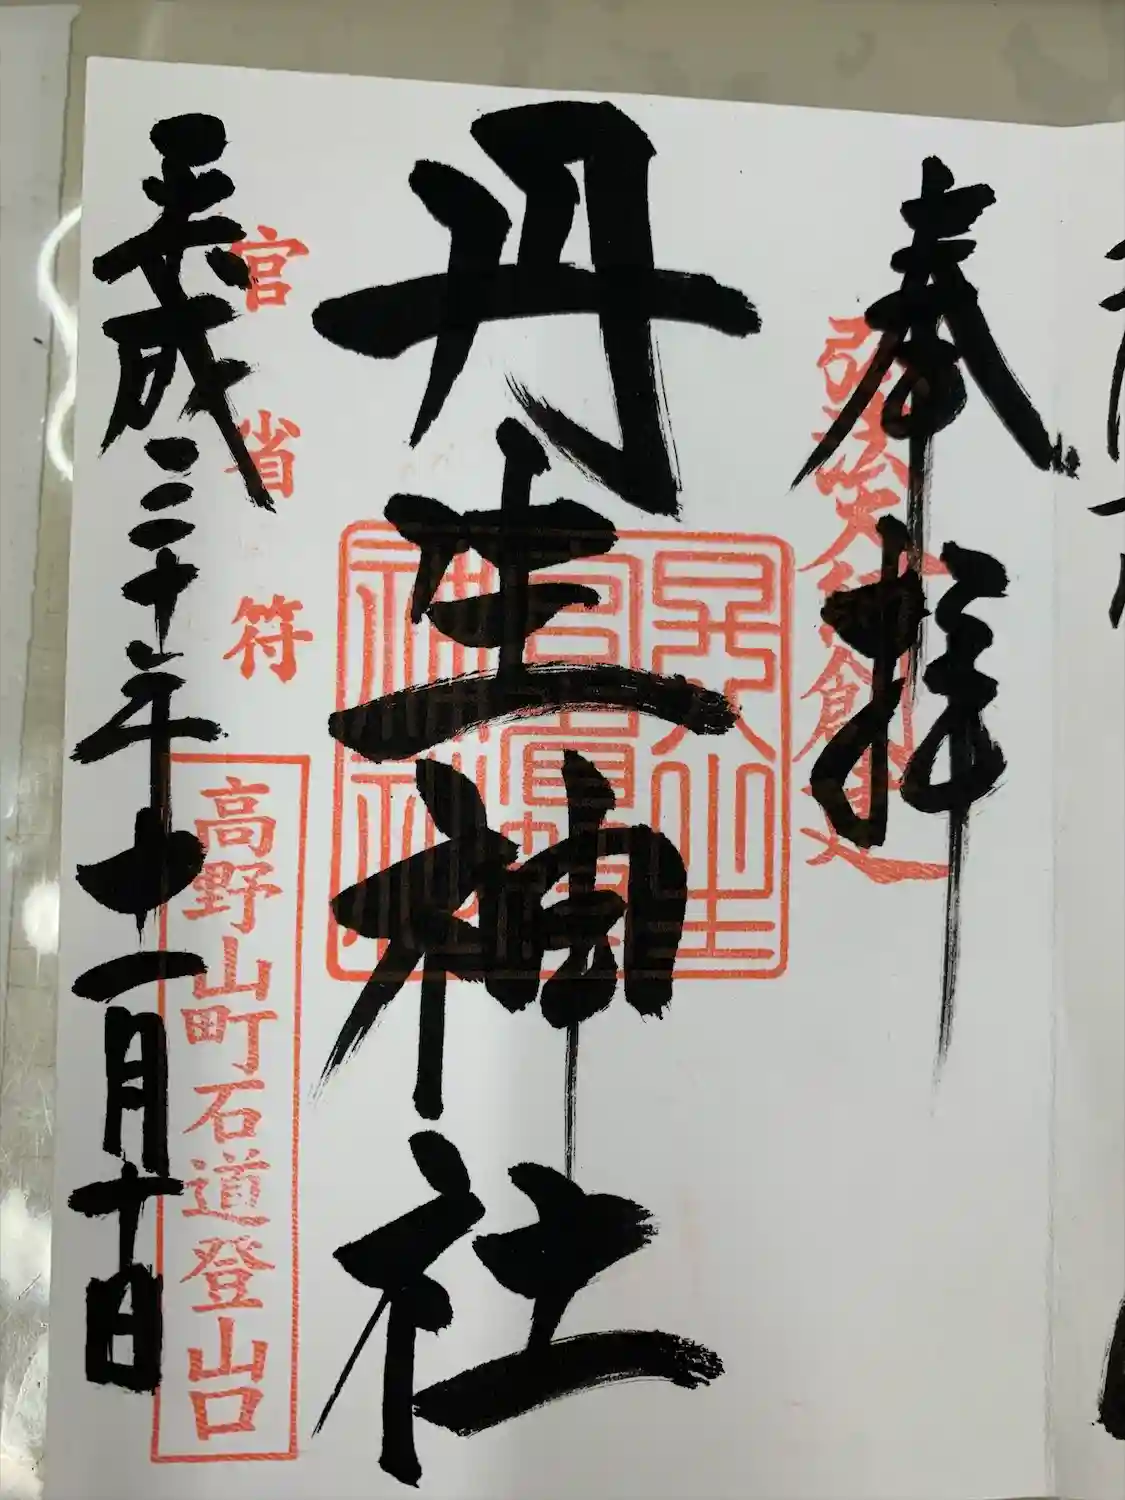 奉拝
弘法大師創建
丹生神社
官省符
高野山町石道登山口
平成三十年十一月十日